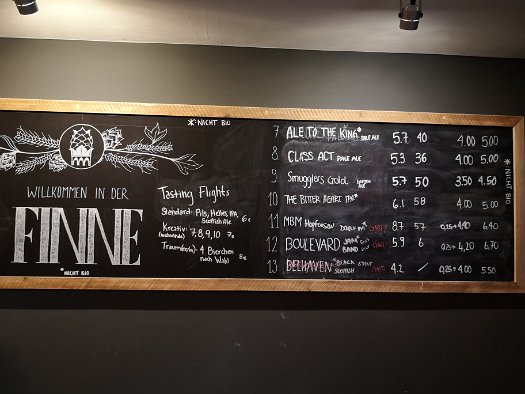 WILLKOMMEN IN DER
FINNE
*NICHT BIO
*NICHT BIO
Tasting Flights
Standard: Pils, Helles, IPA, Scottish Ale 6€
Kreativ: 7,8,9,10 7€
4 Bierchen nach Wahl 8€
7 ALE TO THE KING* PALE ALE 5.7 40 4.00 5.00
8 CLASS ACT PALE ALE 5.3 36 4.00 5.00
9 Smugglers Gold 5.7 50 3.50 4.50
10 THE BITTER BEAST IPA* 6.1 58 4.00 5.00
11 MBM Hopfensau DOUBLE IPA* GAST! 8.7 57 0,25=4,40 6.40
12 BOULEVARD JAM BAND GAST! 5.9 6 0,25=4,20 6.70
13 BEEHAVEN BLACK SCOTTISH STOUT GAST! 4.2 / 0,25=4.00 5.50
*NICHT BIO